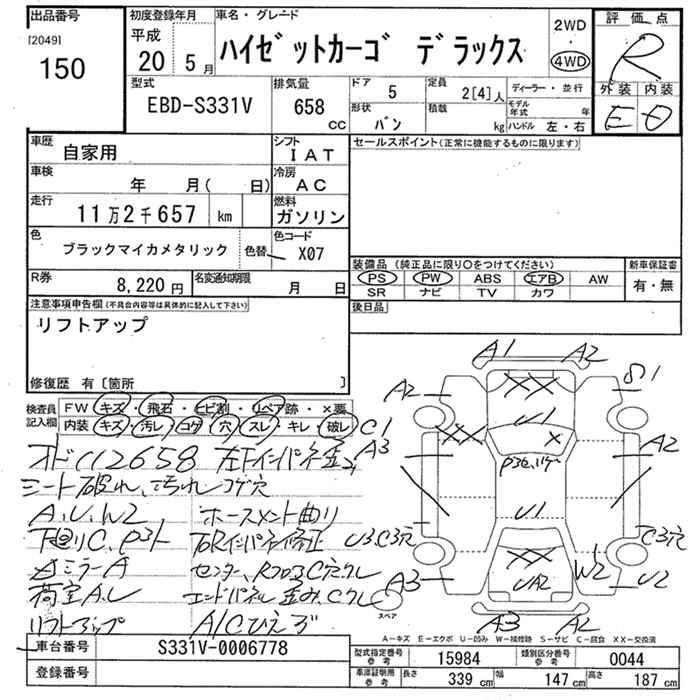 出品番号 初度登録年月 車名・グレード 2WD ・ 4WD 評価点
[2049] 150 平成 20年 5月 ハイゼットカーゴ デラックス R
型式 EBD-S331V 排気量 658 CC ドア 5 定員 2[4]人 ディーラー・並行 外装 内装
形状 バン 積載 kg モデル年式 年 ハンドル 左・右 E D
車歴 自家用 シフト IAT セールスポイント(正常に機能するものに限ります)
車検 年 月( 日) 冷房 AC
走行 11万2千657 km 燃料 ガソリン
色 ブラックマイカメタリック 色替 色コード X07
装備品 (純正品に限り○をつけてください) 新車保証書
R券 8,220円 名変通知期限 月 日 PS PW ABS エアB AW 有・無
SR ナビ TV カワ
注意事項申告欄(不具合内容等は具体的に記入して下さい) 後日品
リフトアップ
修復歴 有〔箇所 〕
検査員記入欄 FW キズ・飛石・ヒビ割・リペア跡・×要
内装 キズ・汚レ・コゲ・穴・スレ・キレ・破レ
オドC112658
シート破れ、汚れ コゲ穴
A、U、W2 ホースメント曲り
下廻りC、P3ト
ミラーA
荷室A、U
リフトアップ A/Cひえず
A1 A2
A2 S1
C1 U1
A3 A2
U1
U3C3穴 C3穴
A3 UA2 W2 U2
スペア A3 A2
A-キズ E-エクボ U-凹み W-補修跡 S-サビ C-腐食 XX-交換済
車台番号 S331V-0006778
登録番号
型式指定番号 参考 15984 類別区分番号 参考 0044
車庫証明用 参考 長さ 339 cm 幅 147 cm 高さ 187 cm